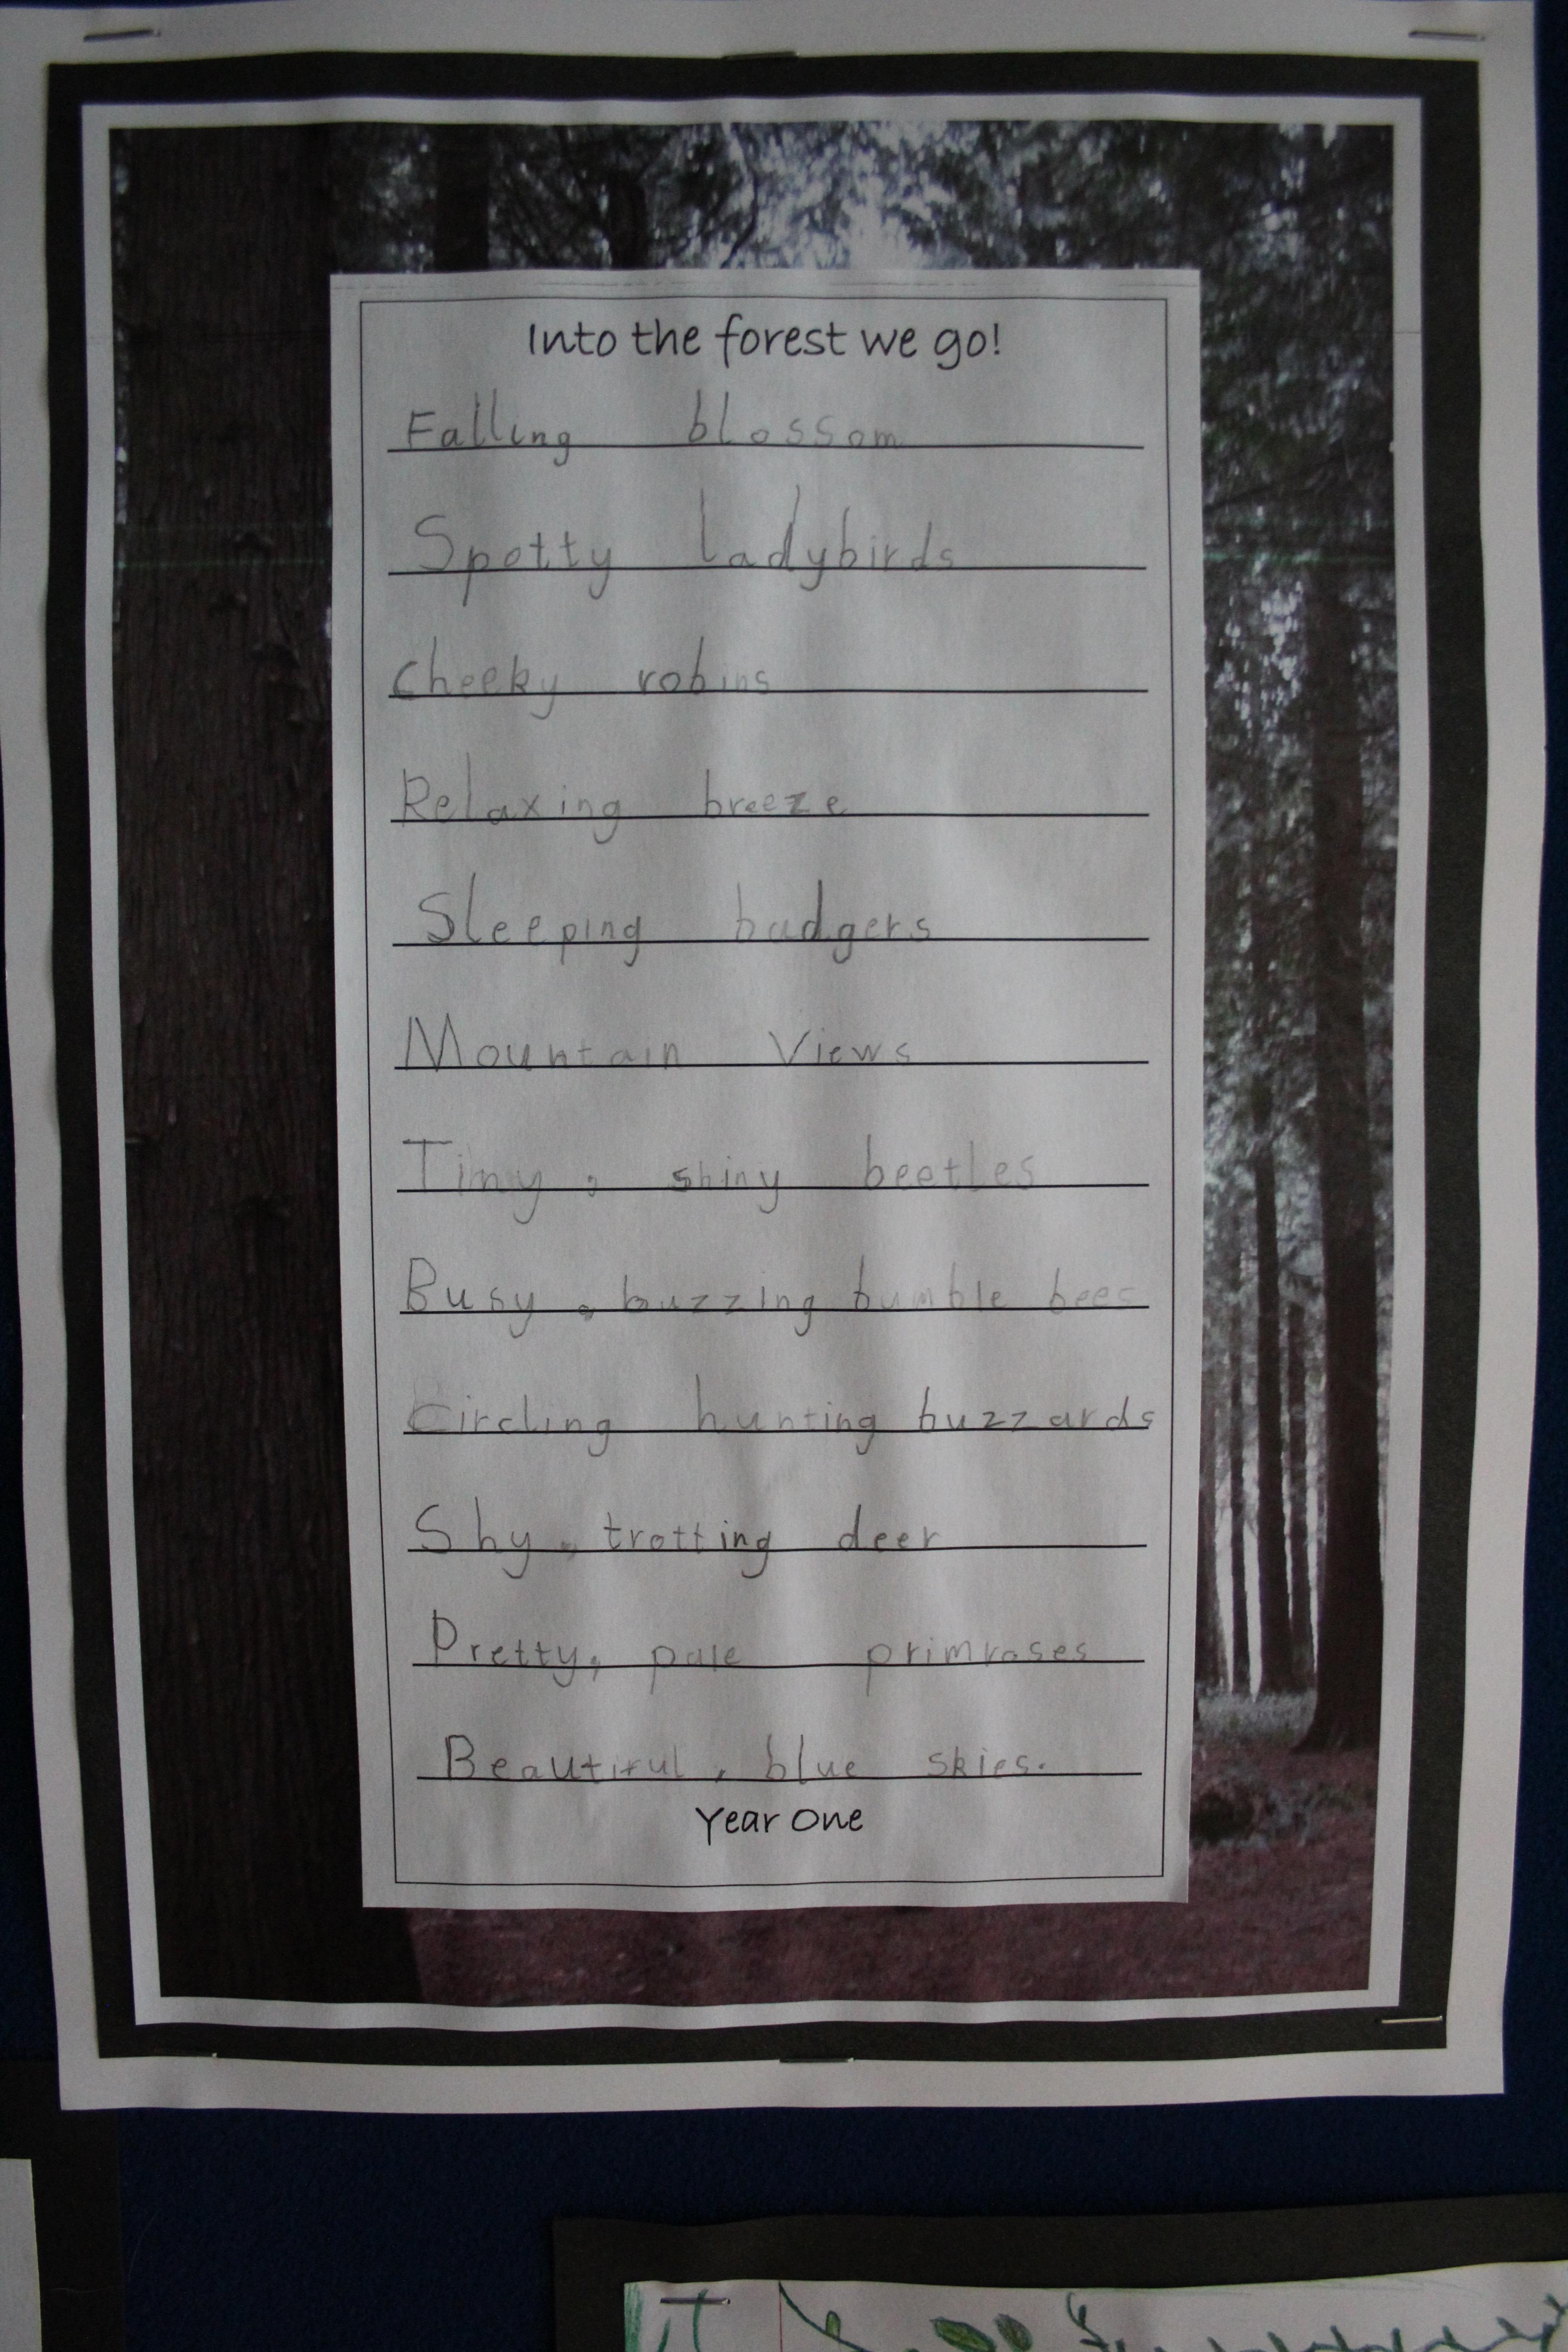 Into the forest we go!
Falling blossom
Spotty ladybirds
Cheeky robins
Relaxing breeze
Sleeping badgers
Mountain Views
Tiny, shiny beetles
Busy, buzzing bumble bees
Circling hunting buzzards
Shy, trotting deer
Pretty, pale primroses
Beautiful, blue skies.
Year One